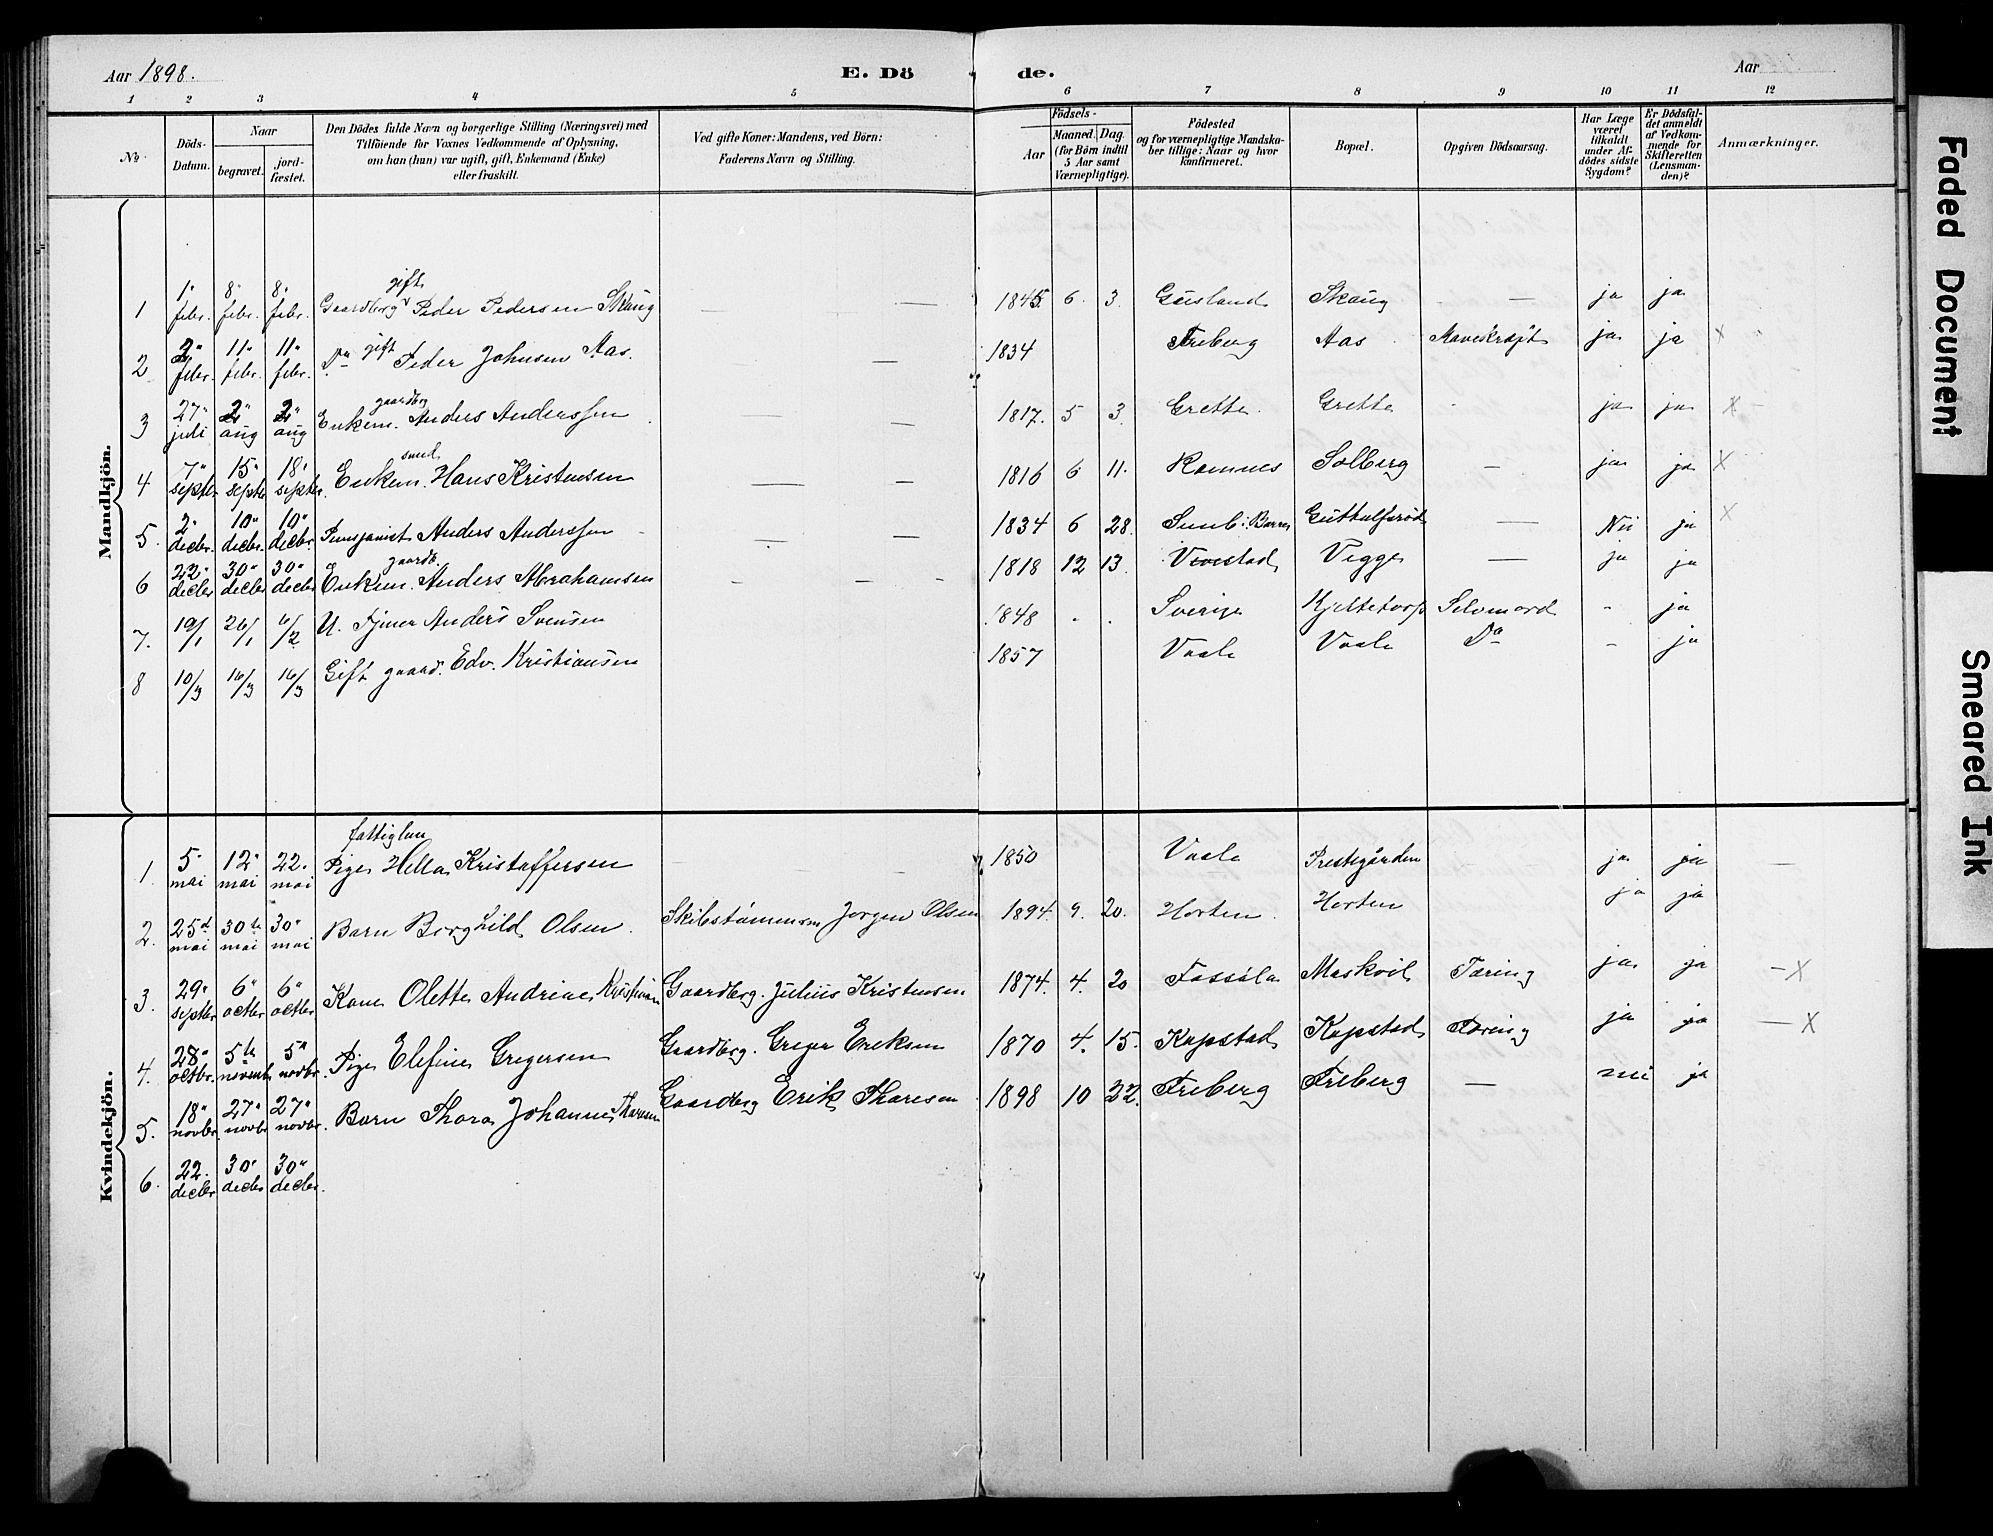 Aar 1898.
E. Dö
de.
Aar
1 2 3 4 5 6 7 8 9 10 11 12
No
Döds-Datum.
Naar
begravet.
jord-fæstet.
Den Dödes fulde Navn og borgerlige Stilling (Næringsvei) med
Tilföiende for Voxnes Vedkommende af Oplysning,
om han (hun) var ugift, gift, Enkemand (Enke)
eller fraskilt.
Ved gifte Koner: Mandens, ved Börn:
Faderens Navn og Stilling.
Födsels-
Aar
Maaned. Dag.
(for Börn indtil
5 Aar samt
Værnepligtige).
Födested
og for værnepligtige Mandska-
ber tillige: Naar og hvor
konfirmeret.
Bopæl.
Opgiven Dödsaarsag.
Har Læge
været
tilkaldt
under Af-
dödes sidste
Sygdom?
Er Dödsfal-
det anmeldt
af Vedkom-
mende for
Skifteretten
(Lensman-
den)?
Anmærkninger.
Mandkjön.
1 1" febr. 8" febr. 8" febr. Gaardberg gift Peder Pedersen Skaug — — 1845 6. 3. Gusland Skaug — ja ja
2 2" febr. 11" febr. 11" febr. Do gift Peder Johnsen Aas. — 1834 Freberg Aas Mavekræft ja ja x
3 27" juli 2" aug 2" aug Enkem. gaardbrg Anders Anderssen — — 1817. 5 3. Grette Grette ja ja x
4 7" septbr 15" septbr 18" septbr. Enkem. smed Hans Kristensen — — 1816 6 11. Ramnes Solberg — ja ja x
5. 2" decbr. 10" decbr. 10" decbr. Pensjonist Anders Anderssen — — 1834 6 28. i Borre — Nei ja x
6 22" decbr 30" decbr 30" decbr Enkem. gaardb. Anders Abrahamsen — — — 1818 12 13. Vivestad Vegge — ja ja
7. 19/1 26/1 6/2 U. Tjener Anders Svensen 1848 . . Sverige Kjeltetorp Selvmord - ja
8 10/3 16/3 16/3 Gift gaard. Edv. Kristiansen 1857 Vaale Vaale Do - ja
Kvindekjön.
1. 5" mai 12" mai 22. mai Pige fattiglem Hella Kristoffersen — — 1850 Vaale Prestegården ja ja —
2. 25d mai 30te mai 30" mai Barn Borghild Olsen. Skibstømmerm Jørgen Olsen 1894. 9. 20. Horten. Horten ja ja
3. 29" septbr 6" octbr 6" octbr Kone Olette Andrine Kristensen Gaardbrg. Julius Kristensen 1874. 4. 20 Fossåla Maskvil Tæring ja ja — x
4. 28" octbr. 5te novemb 5" novbr. Pige Elefine Gregersen Gaardbrg. Greger Eriksen 1870 4. 15. Kopstad Kopstad Tæring ja ja — x
5. 18" novbr. 27" novbr 27" novbr. Barn Thora Johanne Thoresen Gaardbrg Erik Thoresen 1898 10 22. Freberg Freberg — nei ja
6. 22. decbr. 30" decbr 30" decbr.
Faded Document
Smeared Ink